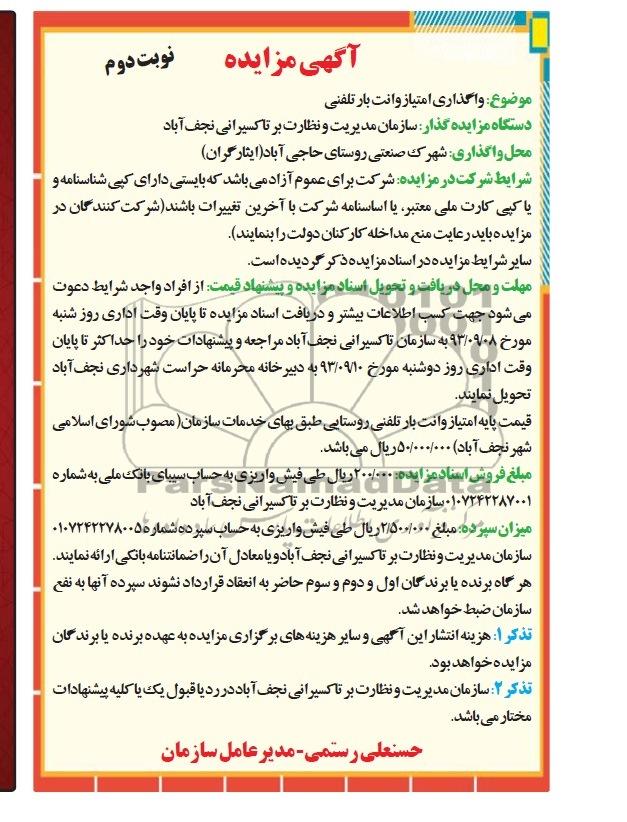 آگهی مزایده
نوبت دوم
موضوع: واگذاری امتیاز وانت بار تلفنی
دستگاه مزایده گذار: سازمان مدیریت و نظارت بر تاکسیرانی نجف آباد
محل واگذاری: شهرک صنعتی روستای حاجی آباد(ایثارگران)
شرایط شرکت در مزایده: شرکت برای عموم آزاد می باشد که بایستی دارای کپی شناسنامه و
یا کپی کارت ملی معتبر، یا اساسنامه شرکت با آخرین تغییرات باشند(شرکت کنندگان در
مزایده باید رعایت منع مداخله کارکنان دولت را بنمایند).
سایر شرایط مزایده در اسناد مزایده ذکر گردیده است.
مهلت و محل دریافت و تحویل اسناد مزایده و پیشنهاد قیمت: از افراد واجد شرایط دعوت
می شود جهت کسب اطلاعات بیشتر و دریافت اسناد مزایده تا پایان وقت اداری روز شنبه
مورخ ۹۳/۰۹/۰۸ به سازمان تاکسیرانی نجف آباد مراجعه و پیشنهادات خود را حداکثر تا پایان
وقت اداری روز دوشنبه مورخ ۹۳/۰۹/۱۰ به دبیرخانه محرمانه حراست شهرداری نجف آباد
تحویل نمایند.
قیمت پایه امتیاز وانت بار تلفنی روستایی طبق بهای خدمات سازمان( مصوب شورای اسلامی
شهر نجف آباد) ۵۰/۰۰۰/۰۰۰ ریال می باشد.
مبلغ فروش اسناد مزایده: ۲۰۰/۰۰۰ ریال طی فیش واریزی به حساب سیبای بانک ملی به شماره
۰۱۰۷۲۴۲۲۸۷۰۰۱ سازمان مدیریت و نظارت بر تاکسیرانی نجف آباد
میزان سپرده: مبلغ ۲/۵۰۰/۰۰۰ ریال طی فیش واریزی به حساب سپرده شماره ۰۱۰۷۲۴۲۲۷۸۰۰۵
سازمان مدیریت و نظارت بر تاکسیرانی نجف آباد و یا معادل آن را ضمانتنامه بانکی ارائه نمایند.
هر گاه برنده یا برندگان اول و دوم و سوم حاضر به انعقاد قرارداد نشوند سپرده آنها به نفع
سازمان ضبط خواهد شد.
تذکر ۱: هزینه انتشار این آگهی و سایر هزینه های برگزاری مزایده به عهده برنده یا برندگان
مزایده خواهد بود.
تذکر ۲: سازمان مدیریت و نظارت بر تاکسیرانی نجف آباد در رد یا قبول یک یا کلیه پیشنهادات
مختار می باشد.
حسنعلی رستمی - مدیر عامل سازمان
ParsNamadData